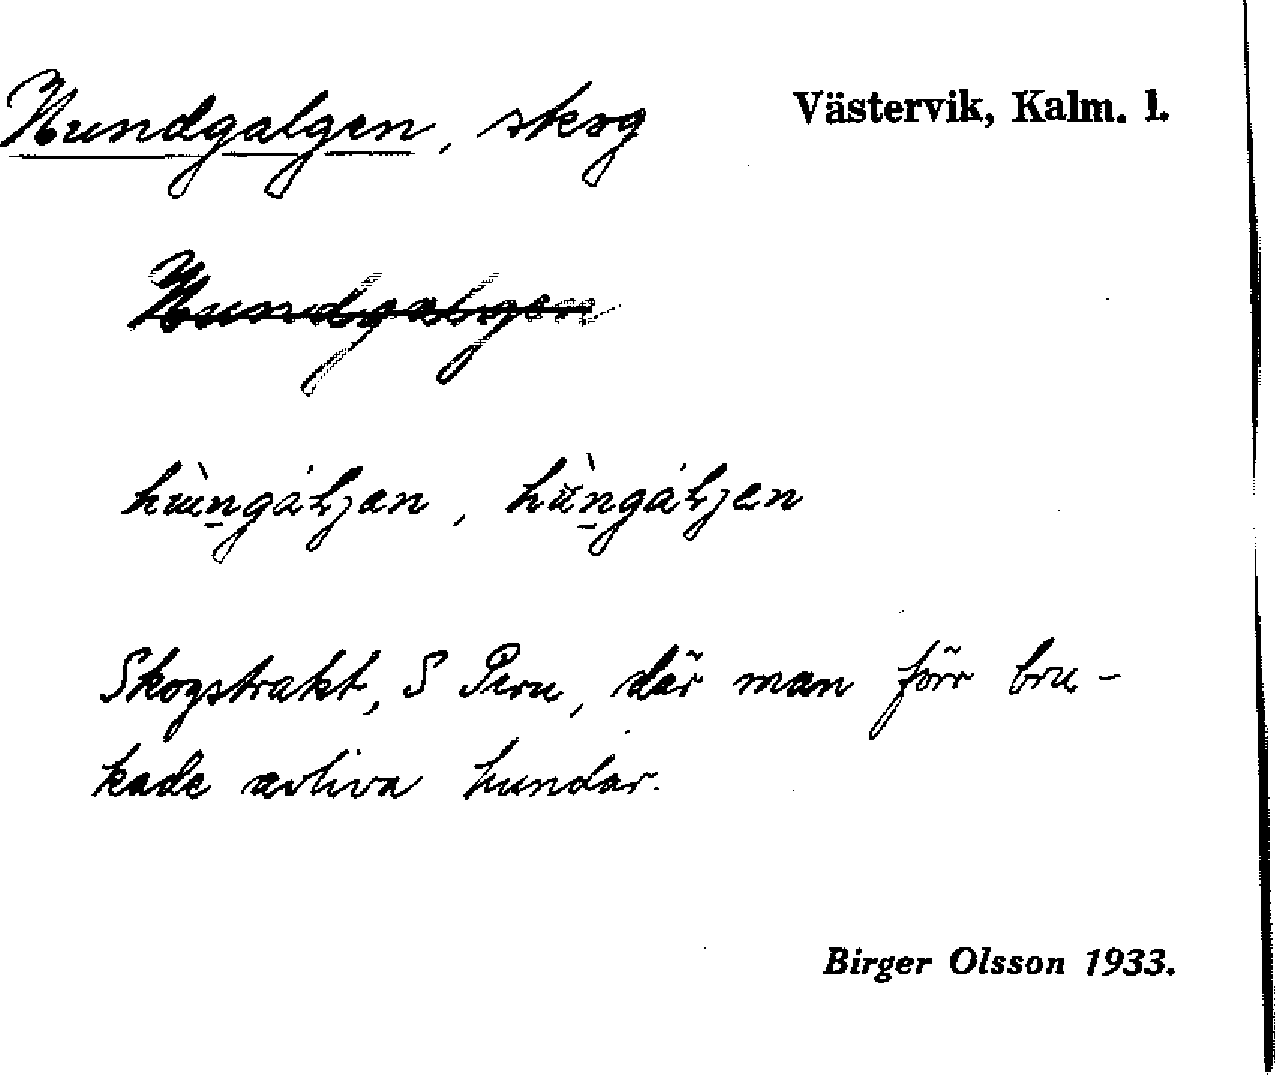 Hundgalgen, skog Västervik, Kalm. l.
Hundgalgen
Skogstrakt, S Peru, där man förr bru-
kade avliva hundar.
Birger Olsson 1933.